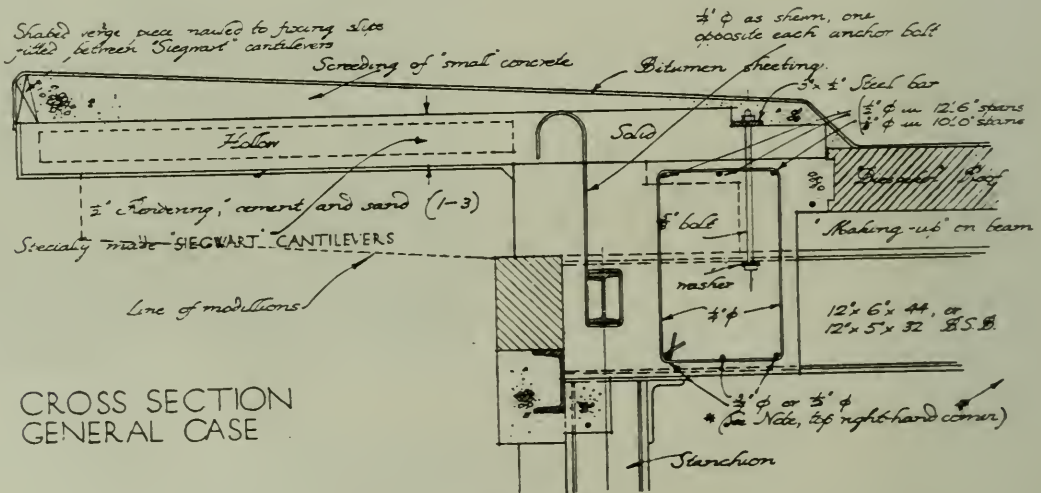 Shaped verge piece nailed to fixing slips
fitted between "Siegwart" cantilevers
Screeding of "small" concrete
Bitumen sheeting
¼" φ as shewn, one
opposite each anchor bolt
Steel bar
φ in 12'6" spans
φ in 10'0" spans
Hollow
Solid
Roof
½" Rendering, cement and sand (1-3)
Specially made "SIEGWART" CANTILEVERS
Line of modillions
bolt
washer
"Making-up" on beam
12" x 6" x 44, or
12" x 5" x 32 B.S.B.
φ or ½" φ
* (See Note, top right-hand corner)
Stanchion
CROSS SECTION
GENERAL CASE